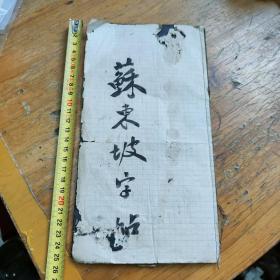 蘇東坡字帖